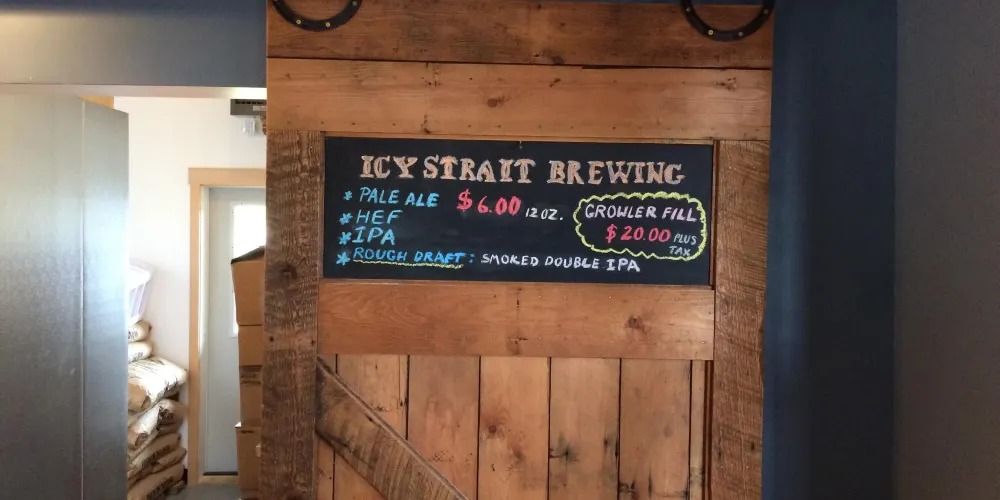 ICY STRAIT BREWING
* PALE ALE $6.00 12 OZ.
* HEF
* IPA
* ROUGH DRAFT: SMOKED DOUBLE IPA
GROWLER FILL
$20.00 PLUS
TAX